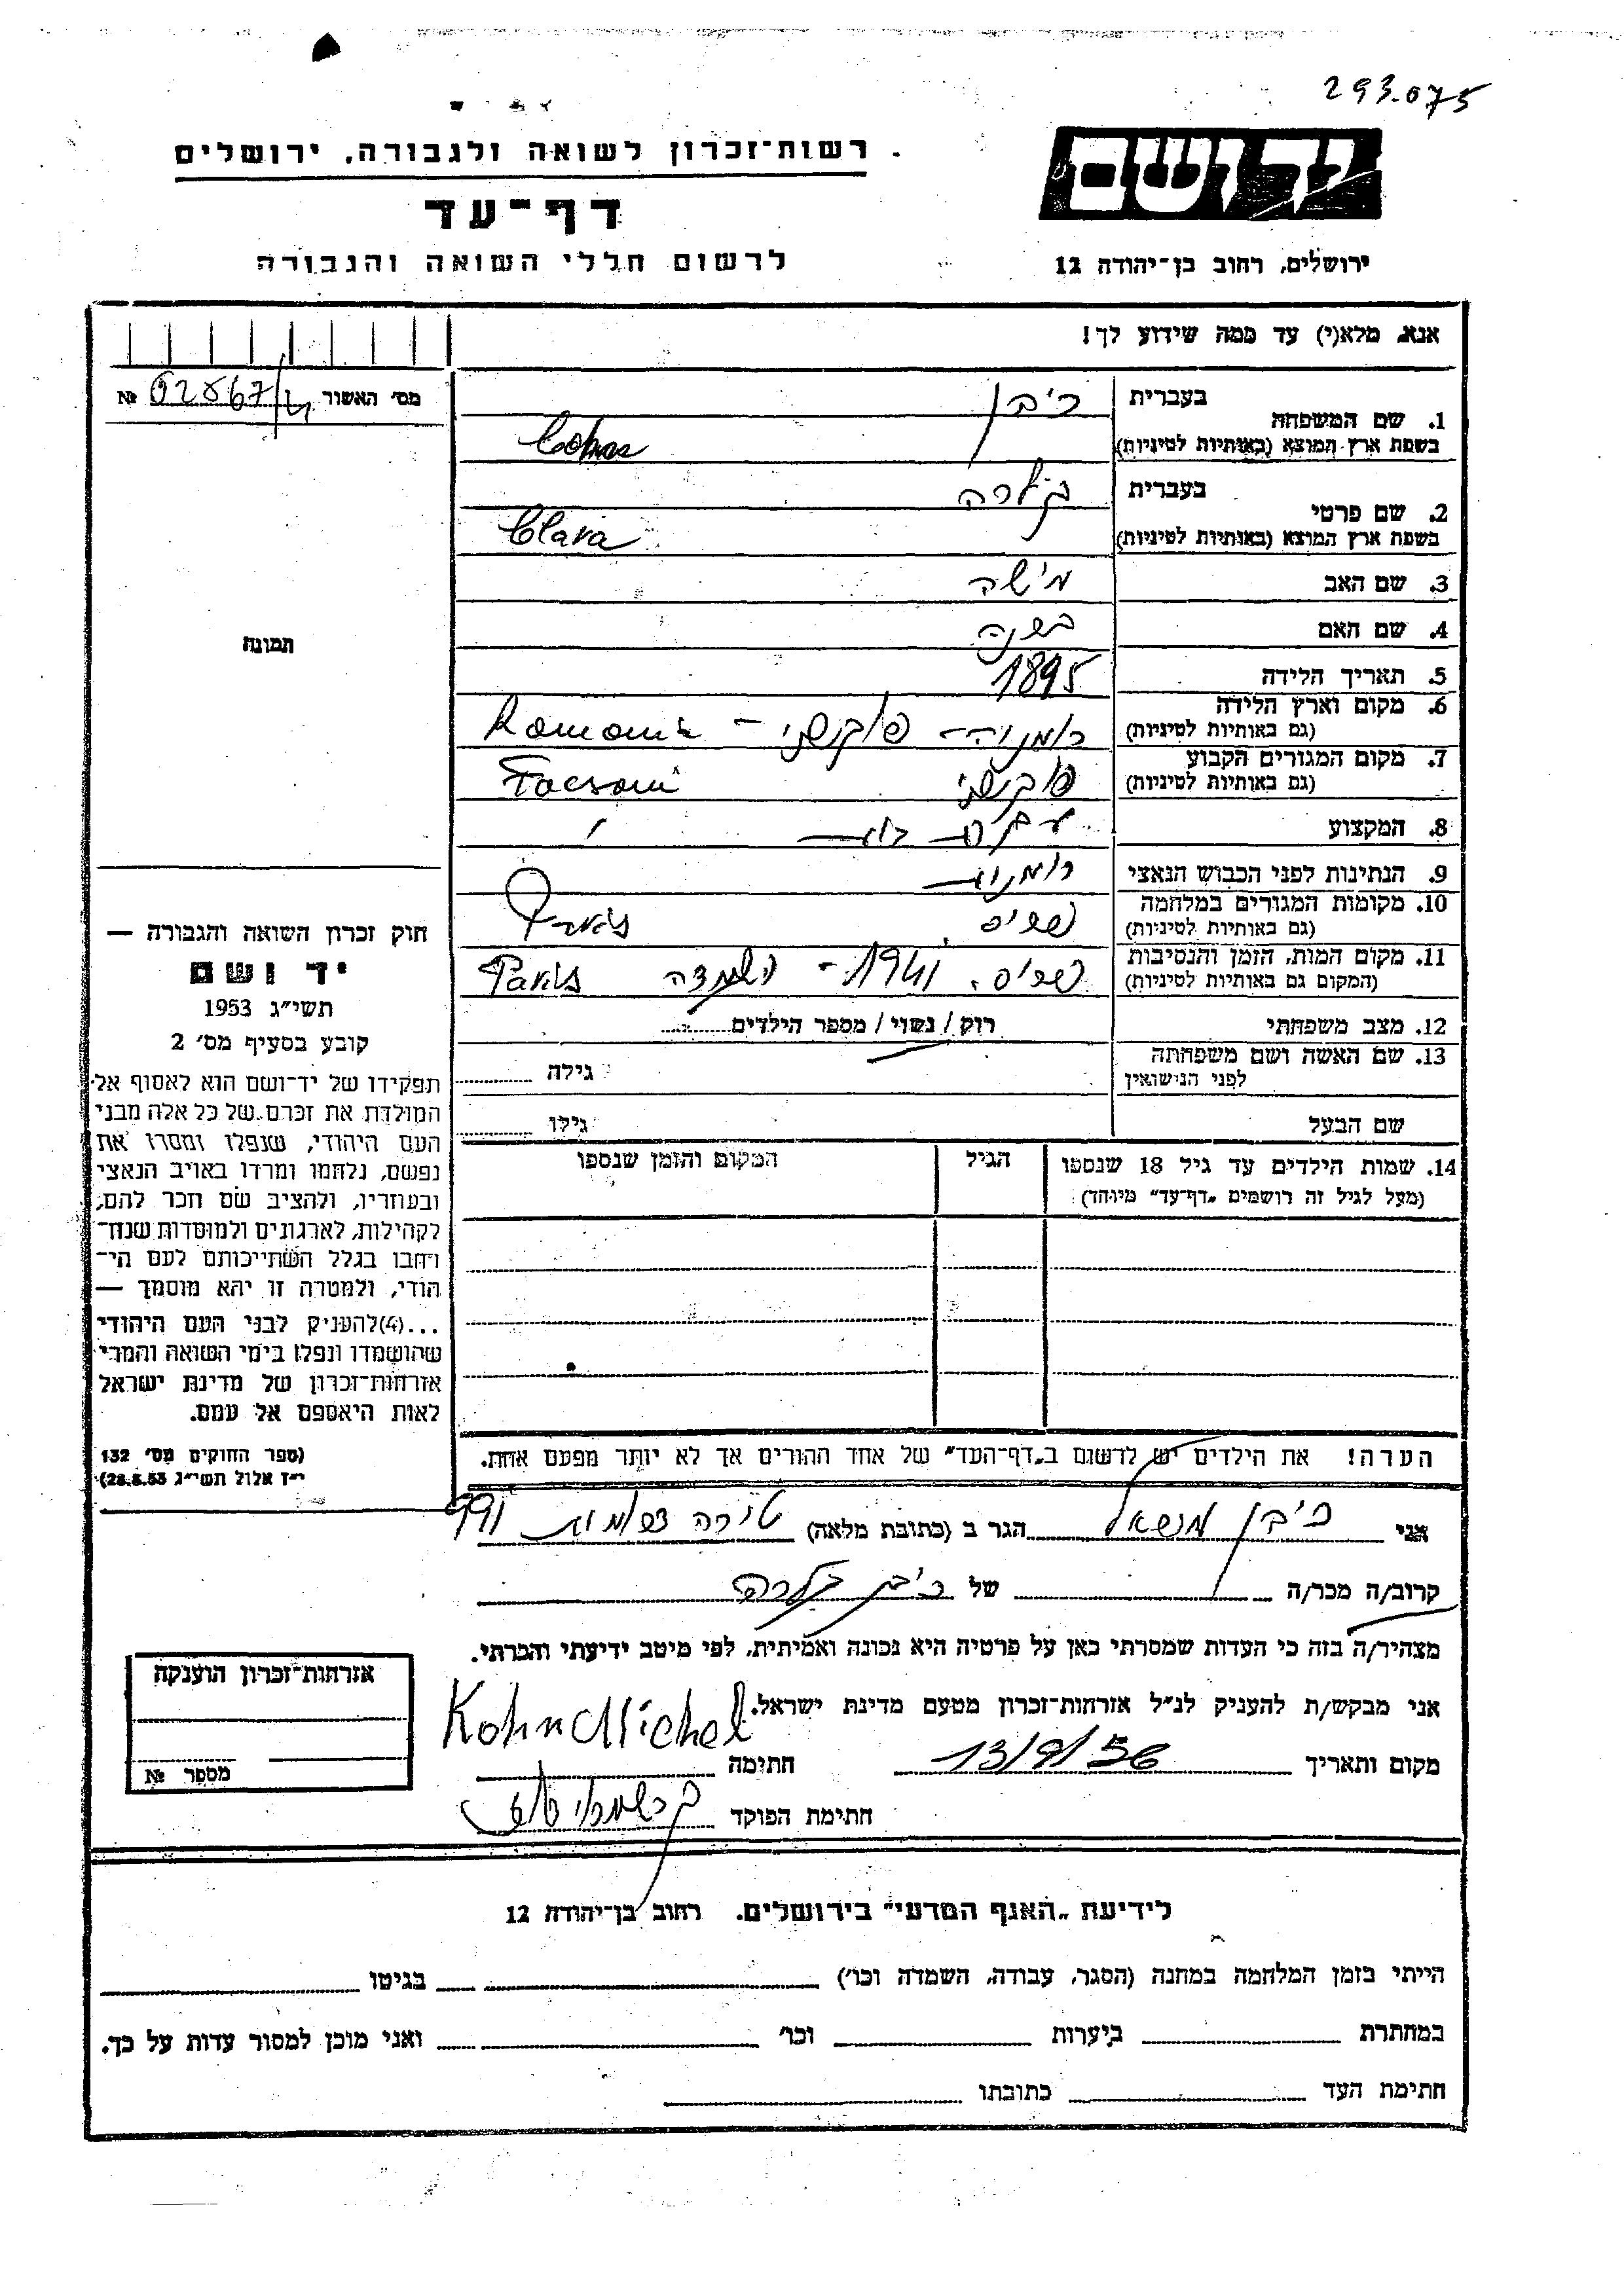 293.075
רשות־זכרון לשואה ולגבורה, ירושלים
דף־עד
לרשום חללי השואה והגבורה
יד ושם
ירושלים, רחוב בן־יהודה 12
אנא, מלא(י) עד כמה שידוע לך!
מס׳ האשור № 02867/
תמונה
1. שם המשפחה בעברית כ׳הן
בשפת ארץ המוצא (באותיות לטיניות) Cohn
2. שם פרטי בעברית קלרה
בשפת ארץ המוצא (באותיות לטיניות) Clara
3. שם האב מישה
4. שם האם
5. תאריך הלידה 1895
6. מקום וארץ הלידה (גם באותיות לטיניות) רומניה – פוקשני – Romania
7. מקום המגורים הקבוע (גם באותיות לטיניות) פוקשני Focsani
8. המקצוע עקרת בית
9. הנתינות לפני הכבוש הנאצי רומנית
10. מקומות המגורים במלחמה (גם באותיות לטיניות) פריס, Paris
11. מקום המות, הזמן והנסיבות (המקום גם באותיות לטיניות) פריס. 1941 – השמדה Paris
12. מצב משפחתי רוק / נשוי / מספר הילדים
13. שם האשה ושם משפחתה לפני הנישואין גילה
שם הבעל גילו
14. שמות הילדים עד גיל 18 שנספו (מעל לגיל זה רושמים „דף־עד״ מיוחד) הגיל המקום והזמן שנספו
הערה! את הילדים יש לרשום ב„דף־העד״ של אחד ההורים אך לא יותר מפעם אחת.
חוק זכרון השואה והגבורה —
יד ושם
תשי״ג 1953
קובע בסעיף מס׳ 2
תפקידו של יד־ושם הוא לאסוף אל
המולדת את זכרם של כל אלה מבני
העם היהודי, שנפלו ומסרו את
נפשם, נלחמו ומרדו באויב הנאצי
ובעוזריו, ולהציב שם וזכר להם,
לקהילות, לארגונים ולמוסדות שנח־
רבו בגלל השתייכותם לעם הי־
הודי, ולמטרה זו יהא מוסמך —
...(4) להעניק לבני העם היהודי
שהושמדו ונפלו בימי השואה והמרי
אזרחות־זכרון של מדינת ישראל
לאות היאספם אל עמם.
(ספר החוקים מס׳ 132
י״ז אלול תשי״ג 28.8.53)
אני כ׳הן מנשאל הגר ב (כתובת מלאה) טירה 991
קרוב/ה מכר/ה של כ׳הן קלרה
מצהיר/ה בזה כי העדות שמסרתי כאן על פרטיה היא נכונה ואמיתית, לפי מיטב ידיעתי והכרתי.
אני מבקש/ת להעניק לנ״ל אזרחות־זכרון מטעם מדינת ישראל.
מקום ותאריך 13/9/56 חתימה Kohn Michel
חתימת הפוקד
אזרחות־זכרון הוענקה
מספר №
לידיעת „האגף המדעי״ בירושלים. רחוב בן־יהודה 12
הייתי בזמן המלחמה במחנה (הסגר, עבודה, השמדה וכו׳) בגיטו
במחתרת ביערות וכו׳ ואני מוכן למסור עדות על כך.
חתימת העד כתובתו